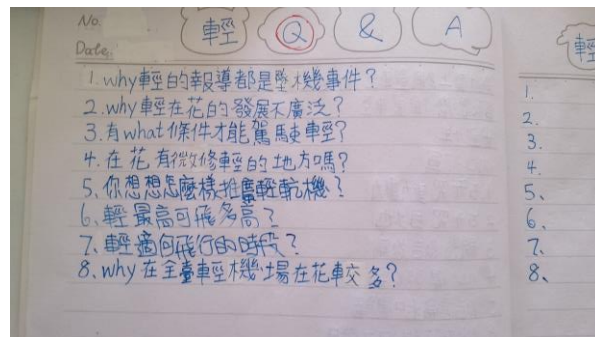 No.
Date:
輕 Q & A
1. why輕的報導都是墜機事件?
2. why輕在花的發展不廣泛?
3. 有what條件才能駕駛輕?
4. 在花有微修輕的地方嗎?
5、你想想怎麼樣推廣輕航機?
6、輕最高可飛多高?
7、輕適何飛行的時段?
8、why在全臺輕機場在花較多?
輕
1.
2.
3.
4.
5、
6、
7、
8、